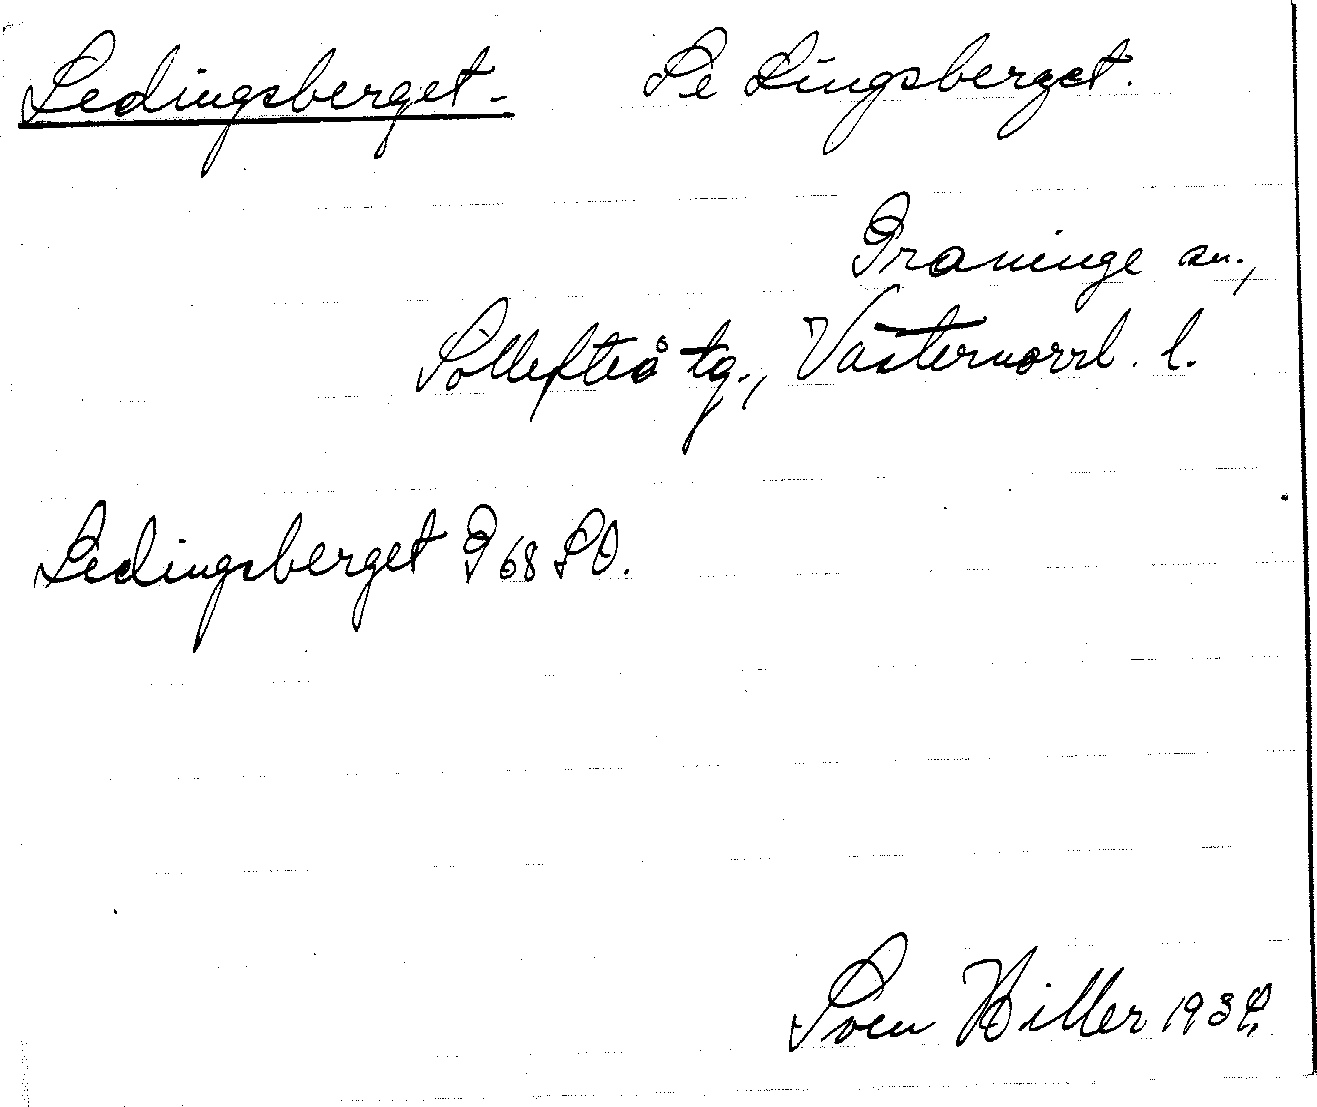 Ledingsberget. Se Lingsberget.
Graninge sn.,
Sollefteå tg., Västernorrl. l.
Ledingsberget G 68 SO.
Sven Hiller 1932.